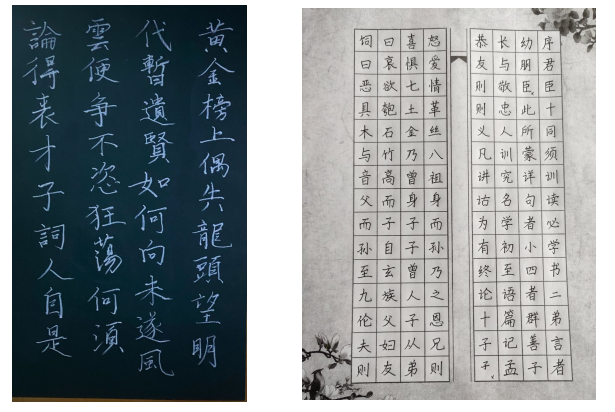 黃金榜上偶失龍頭望明
代暫遺賢如何向未遂風
雲便争不恣狂蕩何須
論得喪才子詞人自是
饲曰喜怒
曰哀惧爱
恶欲七情
具匏土革
木石金丝
与竹乃八
音高曾祖
父而身身
而子子而
孙自子孙
至玄曾乃
九族人之
伦父子恩
夫妇从兄
则友弟则
恭长幼序
友与朋君
则敬臣臣
则忠此十
义人所同
凡训蒙须
讲究详训
诂名句读
为学者必
有初小学
终至四书
论语者二
十篇群弟
子记善言
子孟子者